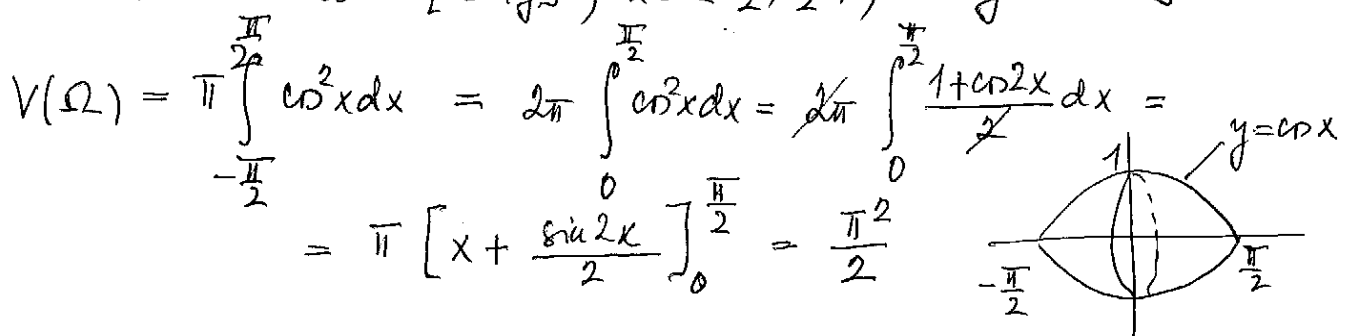 V(Ω) = π ∫_{-π/2}^{π/2} cos²x dx = 2π ∫_0^{π/2} cos²x dx = 2π ∫_0^{π/2} (1+cos2x)/2 dx =
= π [x + sin2x/2]_0^{π/2} = π²/2
1
y=cos x
-π/2
π/2